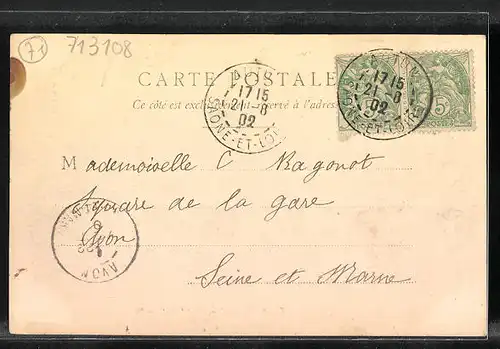 71
713108
CARTE POSTALE
Ce côté est exclusivement réservé à l'adresse
17 15
21 - 8
02
SAONE-ET-LOIRE
17 15
21 - 8
02
SAONE-ET-LOIRE
5c
Mademoiselle C Ragonot
Square de la gare
Avon
Seine et Marne
AVON